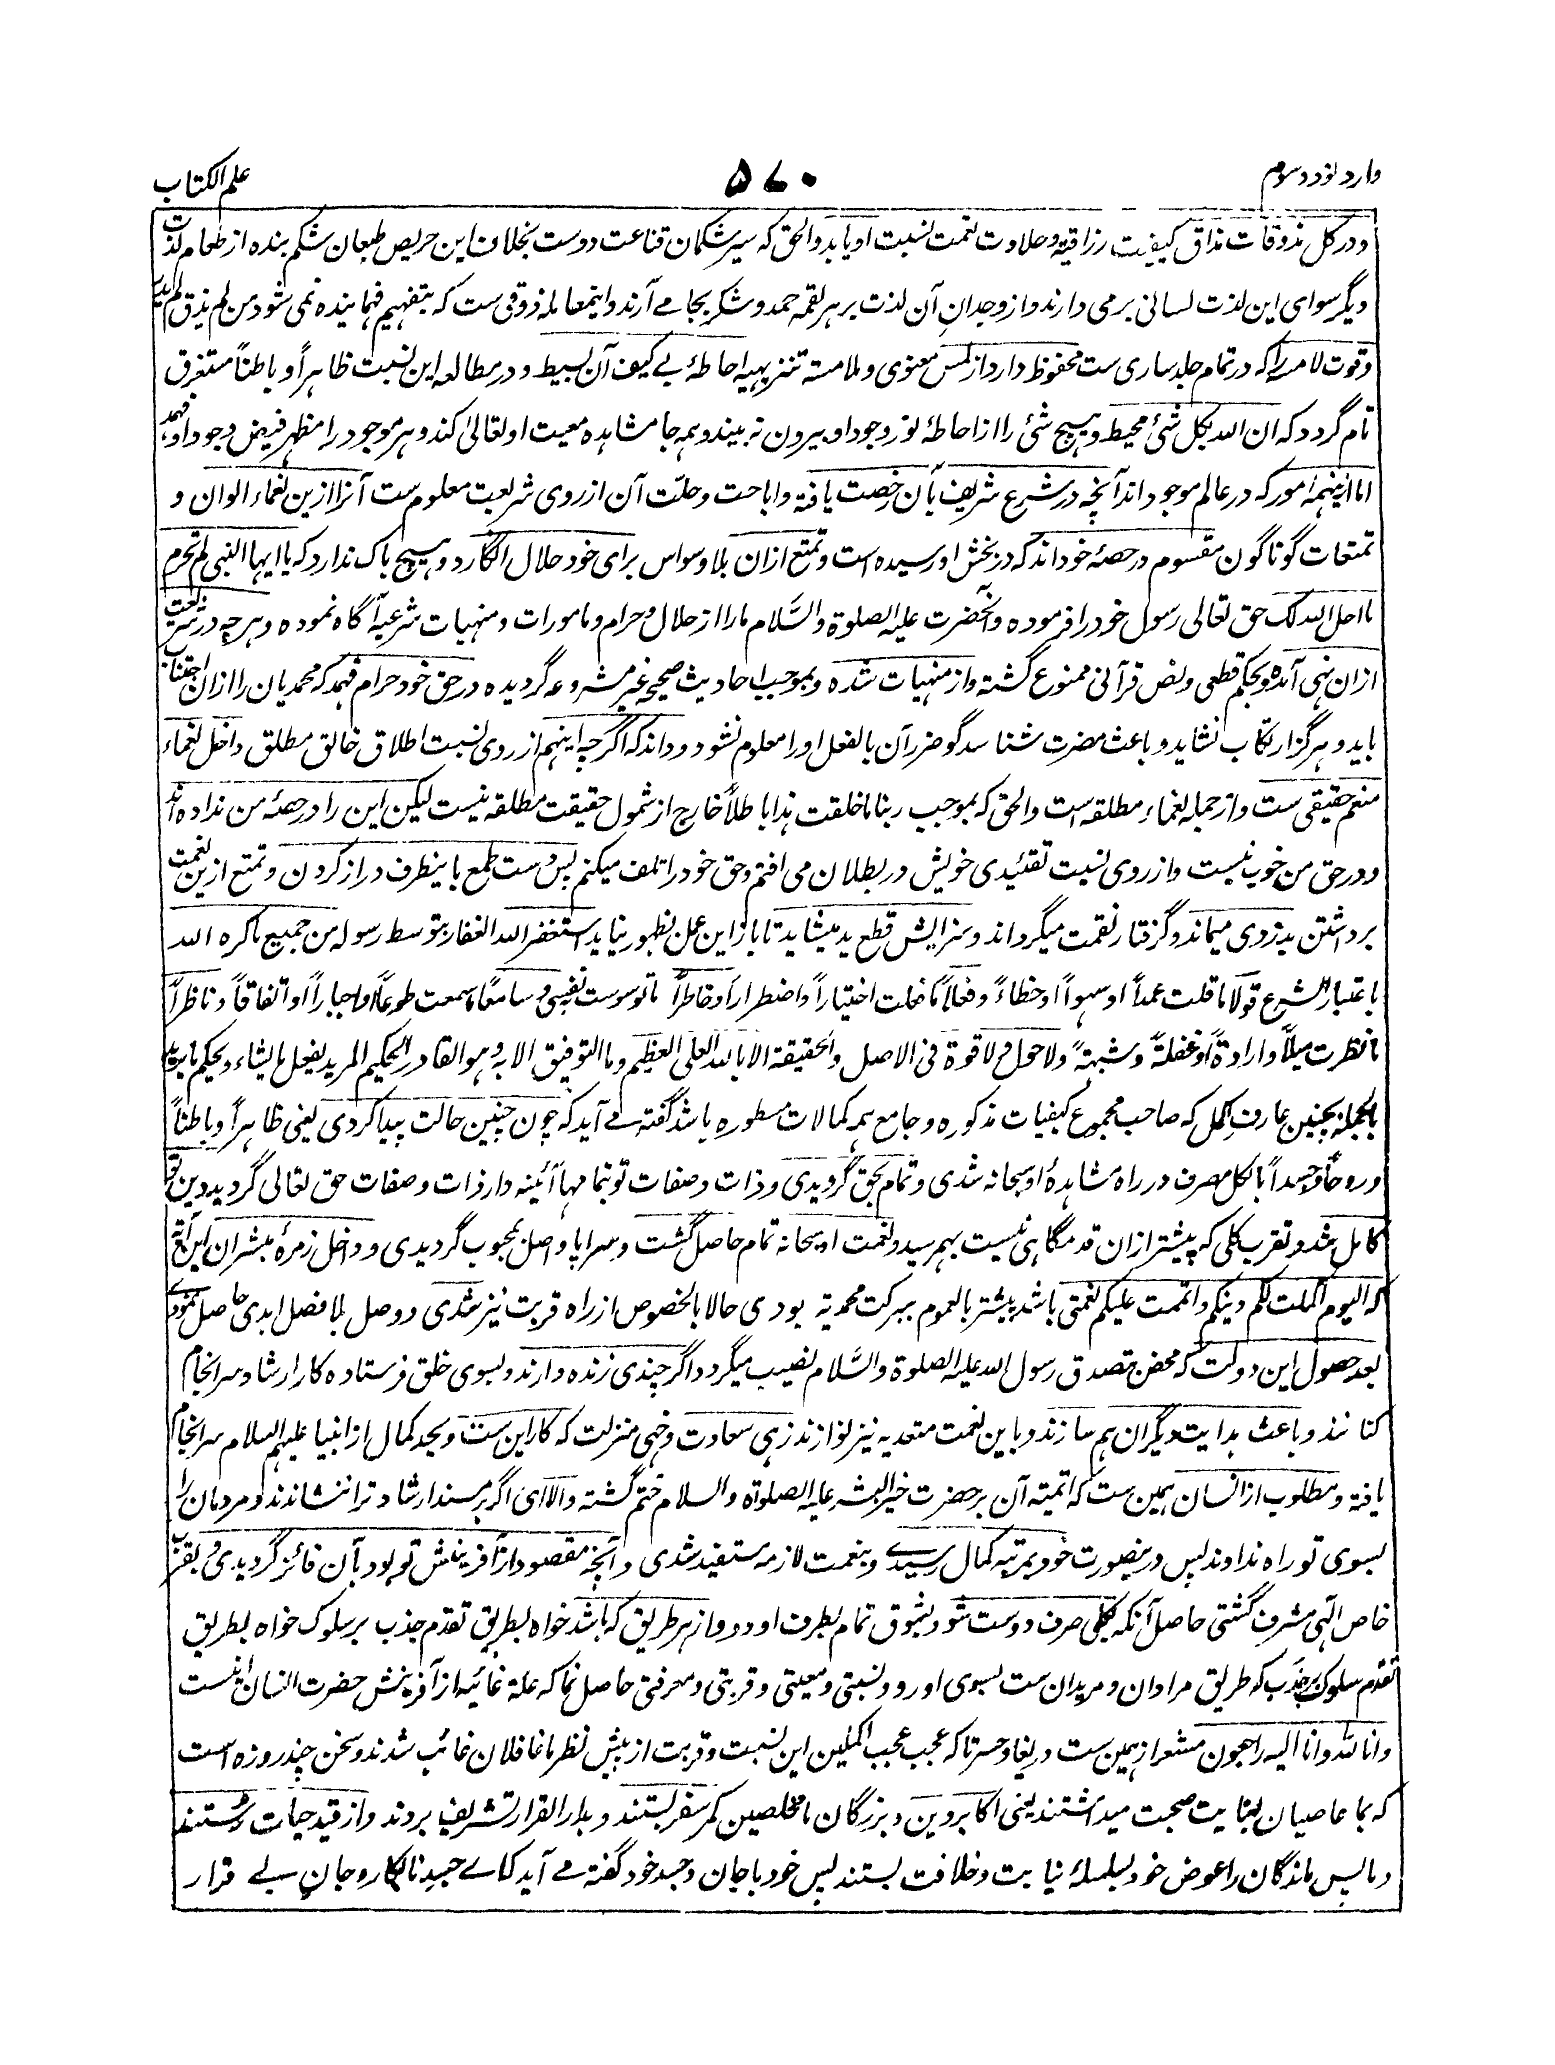 وارد نود و سوم
۵۷۰
علم الکتاب
و در کل مذوقات مذاق کیفیت رزاقیه و حلاوت نعمت نسبت او یابد و الحق که سیر شکمان قناعت دوست بخلاف این حریص طبعان شکم بنده از طعام لذت
دیگر سوای این لذت لسانی بر می دارند و از وجدان آن لذت بر هر لقمه حمد و شکر بجا مے آرند و اینمعامله ذوقی ست که بتفهیم فهماینده نمی شود من لم یذق لم یدر
و قوت لامسه را که در تمام جلد ساری ست محفوظ دارد از لمس معنوی و ملامسته تنزیهیه احاطهٔ بے کیف آن بسیط و در مطالعه این نسبت ظاهراً و باطناً مستغرق
تام گردد که ان الله بکل شئ محیط و هیچ شئ را از احاطهٔ نور وجود او بیرون نه بیند و همه جا مشاهده معیت او تعالیٰ کند و هر موجود را مظهر فیض وجود او فهمد
اما ازینهمه امور که در عالم موجود اند آنچه در شرع شریف بآن رخصت یافته و اباحت و حلّت آن از روی شریعت معلوم ست آنرا ازین نعماء الوان و
تمتعات گوناگون مقسوم در حصهٔ خود داند که در بخش او رسیده است و تمتع ازان بلا وسواس برای خود حلال انگارد و هیچ باک ندارد که یا ایها النبی لم تحرم
ما احل الله لک حق تعالی رسول خود را فرموده و آنحضرت علیه الصلوة والسّلام ما را از حلال و حرام و مامورات و منهیات شرعیه آگاه نموده و هر چه در شریعت
ازان نهی آمده و بحکم قطعی و نص قرآنی ممنوع گشته و از منهیات شده و بموجب احادیث صحیحه غیر مشروعه گردیده در حق خود حرام فهمد که محمدیان را ازان اجتناب
باید و هرگز ارتکاب نشاید و باعث مضرت شناسد گو ضرر آن بالفعل او را معلوم نشود و داند که اگر چه اینهم از روی نسبت اطلاق خالق مطلق داخل نعماء
منعم حقیقی ست و از جمله نعماء مطلقه است والحق که بموجب ربنا ما خلقت هذا باطلاً خارج از شمول حقیقت مطلقه نیست لیکن این را در حصهٔ من نداده اند
و در حق من خوب نیست و از روی نسبت تقئیدی خویش در بطلان می افتم و حق خود را تلف میکنم پس دست طمع باینطرف دراز کردن و تمتع ازین نعمت
برداشتن بدزدی میماند و گرفتار نقمت میگرداند و سزایش قطع ید میشاید تا باز این عمل بظهور نیاید استغفر الله الغفار بتوسط رسوله من جمیع ما کره الله
باعتبار الشرع قولاً ما قلت عمداً او سهواً او خطاءً و فعلاً ما فعلت اختیاراً و اضطراراً و خاطراً ما توسوست نفسی و سامعاً ما سمعت طوعاً او اجباراً او اتفاقاً و ناظراً
ما نظرت میلاً و ارادةً او غفلةً و شبهةً ولا حول ولا قوة فی الاصل والحقیقة الا بالله العلی العظیم وما التوفیق الا به وهو القادر الحکیم المرید یفعل ما یشاء و یحکم ما یرید
بالجمله بچنین عارف اکمل که صاحب مجموع کیفیات مذکوره و جامع همه کمالات مسطوره باشد گفته مے آید که چون چنین حالت پیدا کردی یعنی ظاهراً و باطناً
و روحاً و جسداً بالکل مصرف در راه مشاهدهٔ او سبحانه شدی و تمام بحق گرویدی و ذات و صفات تو بتمامها آئینه دار ذات و صفات حق تعالی گردید دین تو
کامل شد و تقرب کلی که پیشتر ازان قدمگاهی نیست بهم رسید و نعمت او سبحانه تمام حاصل گشت و سراپا واصل بمحبوب گردیدی و داخل زمرهٔ مبشران این آیة
که الیوم اکملت لکم دینکم و اتممت علیکم نعمتی باشد پیشتر بالعموم ببرکت محمدیه بودی حالا بالخصوص از راه قربت نیز شدی و وصل بلا فصل ابدی حاصل نمودے
بعد حصول این دولت که محض بتصدق رسول الله علیه الصلوة والسّلام نصیب میگردد اگر چندی زنده دارند و بسوی خلق فرستاده کار ارشاد سر انجام
کنانند و باعث هدایت دیگران هم سازند و باین نعمت متعدیه نیز نوازند زهی سعادت و خهی منزلت که کار این ست و بحد کمال از انبیا علیهم السلام سر انجام
یافته و مطلوب از انسان همین ست که اتمیته آن بر حضرت خیر البشر علیه الصلوة والسلام ختم گشته و الا ای اگر بر مسند ارشاد ترا ننشاندند و مردمان را
بسوی تو راه ندادند پس درینصورت خود بمرتبه کمال رسیدے و بنعمت لازمه مستفید شدی و آنچه مقصود از آفرینش تو بود بآن فائز گردیدی و بقرب
خاص الٓهی مشرف گشتی حاصل آنکه بکلی صرف دوست شو و بشوق تمام بطرف او درو از هر طریق که باشد خواه بطریق تقدم جذب بر سلوک خواه بطریق
تقدم سلوک بر جذب که طریق مرادان و مریدان ست بسوی او رو و نسبتی و معیتی و قربتی و معرفتی حاصل نما که علة غائیه از آفرینش حضرت انسان اینست
و انا لله و انا الیه راجعون مشعر از همین ست دریغا و حسرتا که عجب عجب اکملین این نسبت و قربت از پیش نظر ما غافلان غائب شدند و سخن چند روزه است
که بما عاصیان بعنایت صحبت میداشتند یعنی اکابر دین و بزرگان ما مخلصین کمر سفر بستند و بدار القرار تشریف بردند و از قید حیات رستند
و ما پس ماندگان را عوض خود بسلسلهٔ نیابت و خلافت بستند پس خود با جان و جسد خود گفته مے آید کاے جسد ناکاره و جان بے قرار